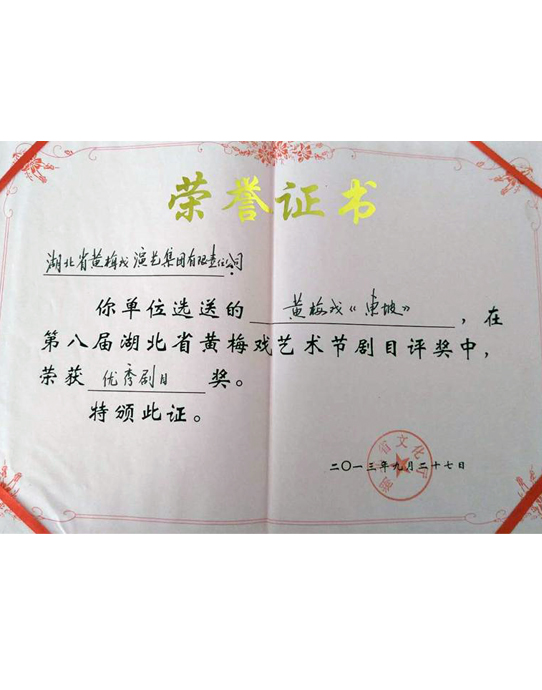 荣誉证书
湖北省黄梅戏演艺集团有限责任公司:
你单位选送的 黄梅戏《东坡》 ，在
第八届湖北省黄梅戏艺术节剧目评奖中，
荣获 优秀剧目 奖。
特颁此证。
湖北省文化厅
二〇一三年九月二十七日